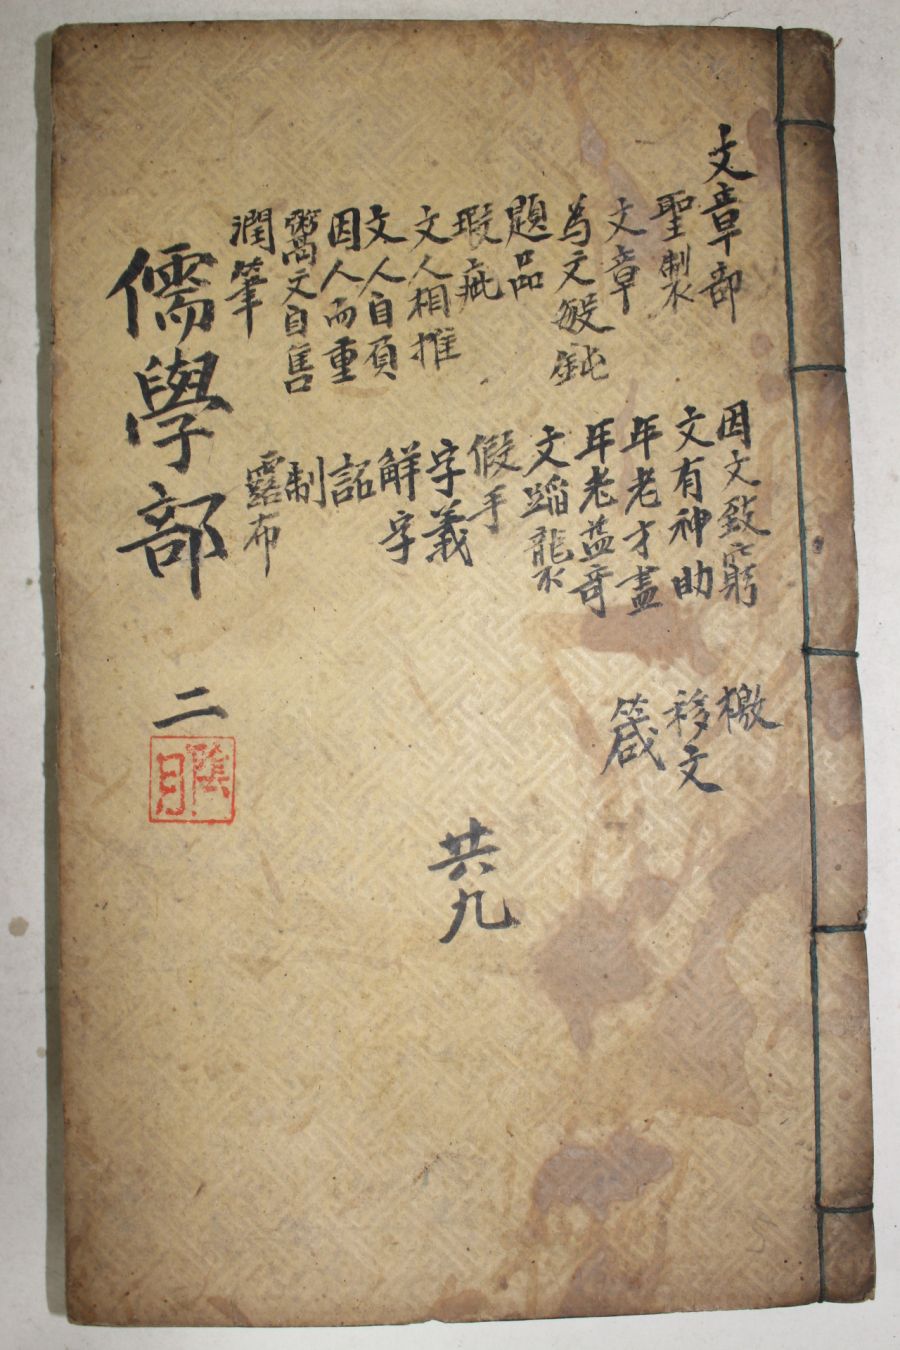 文章部
聖製
文章
為文敏鈍
題品
瑕疵
文人相推
文人自負
因人而重
鬻文自售
潤筆
因文致窮
文有神助
年老才盡
年老益奇
文蹈襲
假手
字義
解字
詔
制
露布
檄
移文
箴
儒學部
二
共九